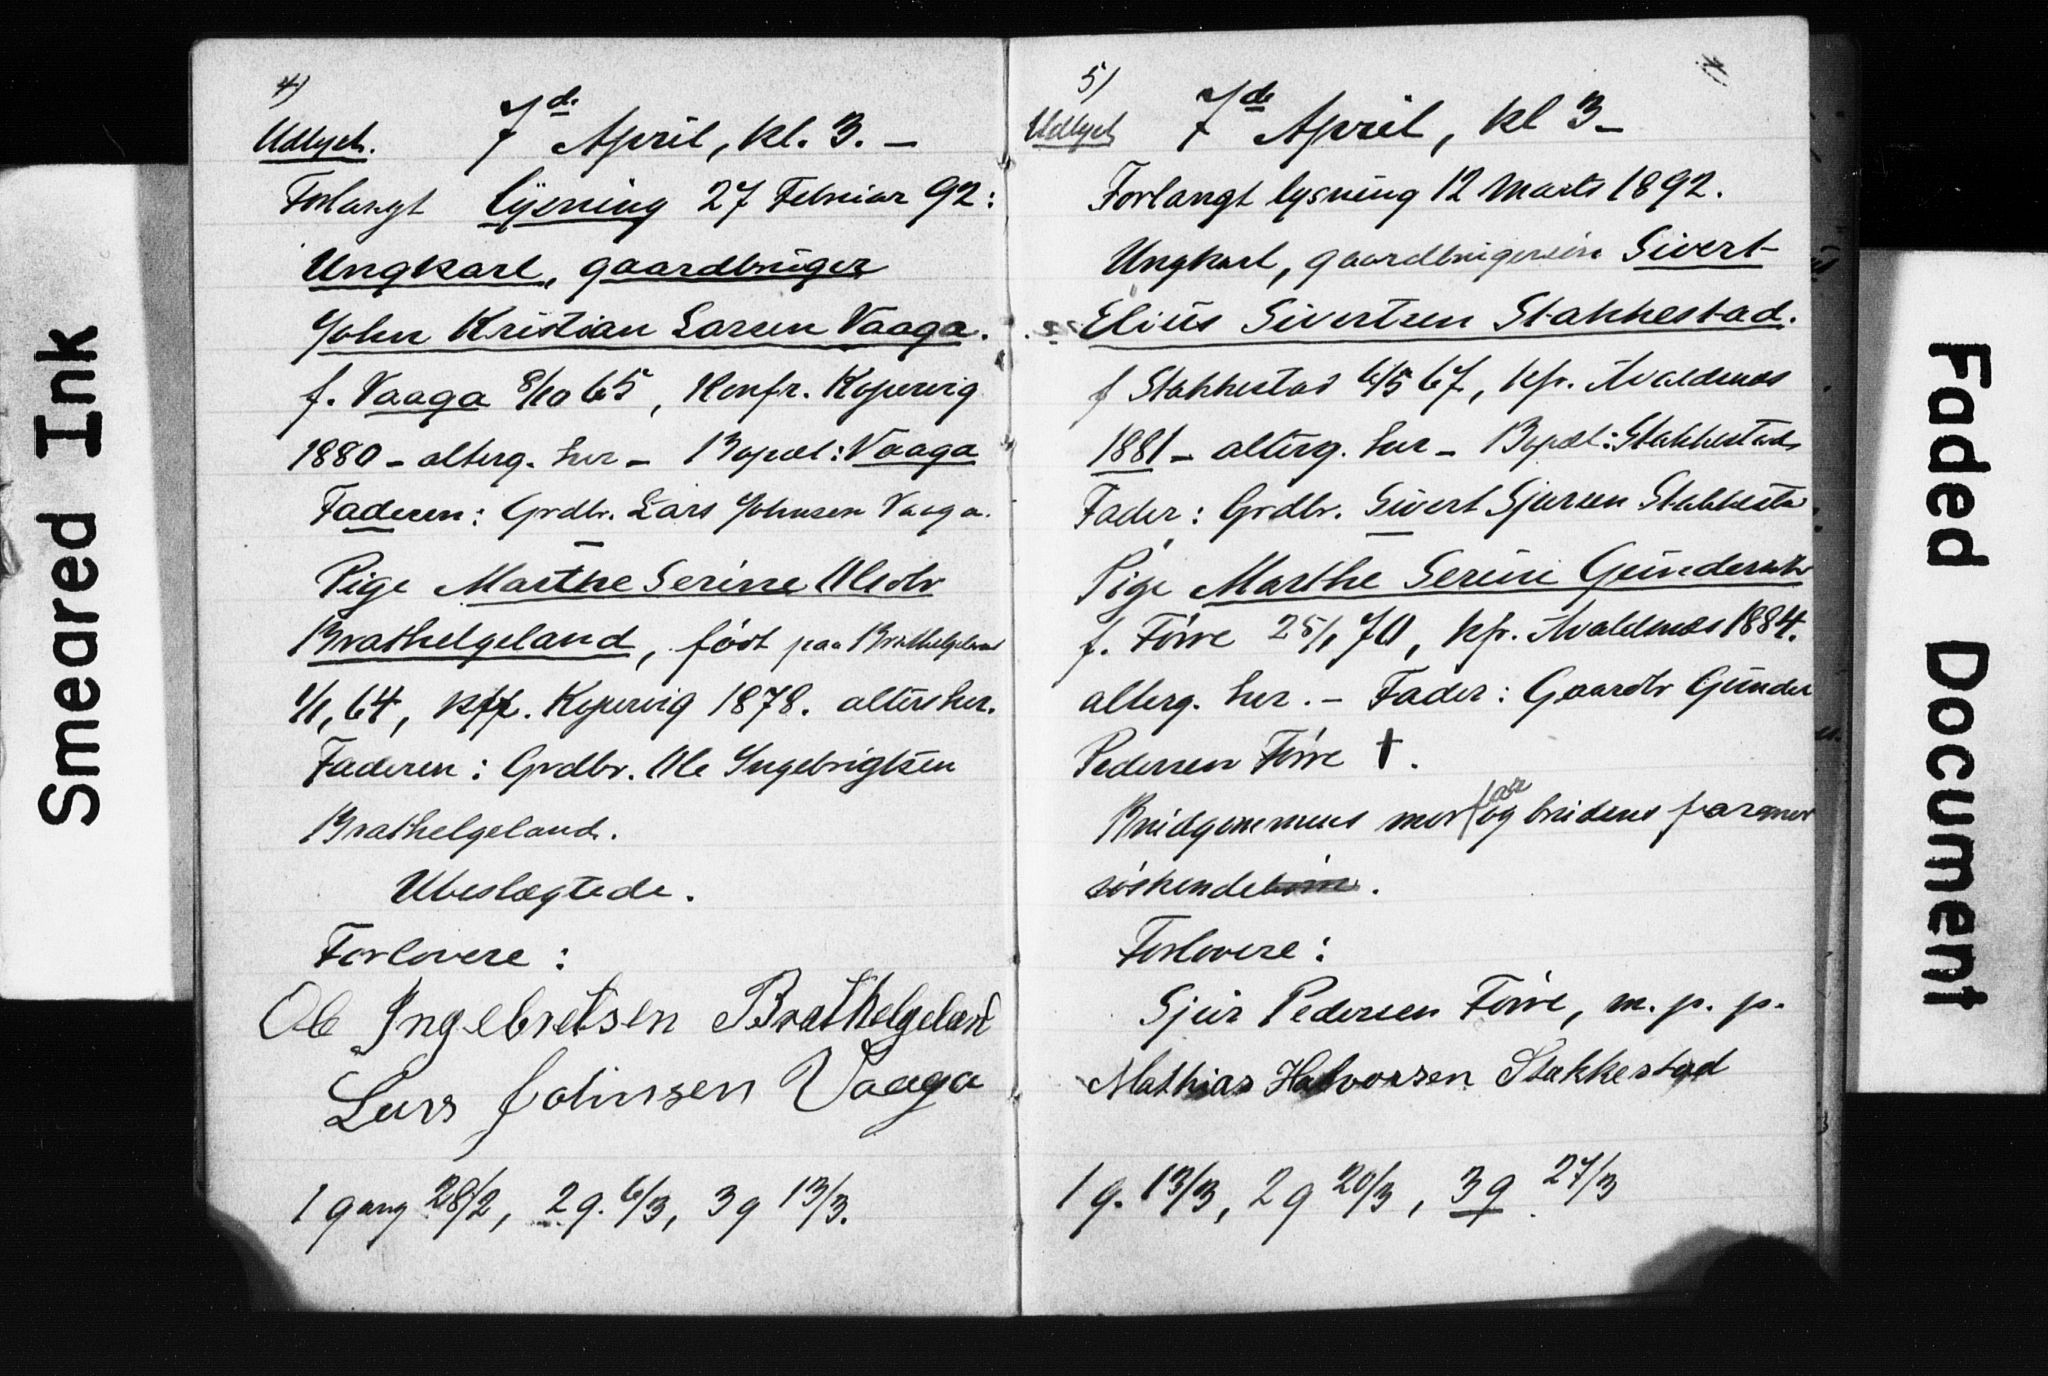 Smeared Ink
4)
Udlyst. 7de April, kl. 3. –
Forlangt lysning 27 Februar 92:
Ungkarl, gaardbruger
John Kristian Larsen Vaaga.
f. Vaaga 8/10 65, Konfr. Kopervig
1880 – alterg. her – Bopæl: Vaaga
Faderen: Grdbr. Lars Johnsen Vaaga.
Pige Marthe Serine Olsdtr
Brathelgeland, født paa Brathelgeland
1/1, 64, kfr. Kopervig 1878. alters her.
Faderen: Grdbr. Ole Ingebrigtsen
Brathelgeland.
Ubeslægtede.
Forlovere:
Ole Ingebretsen Brathelgeland
Lars Johnsen Vaaga
1 gang 28/2, 2g. 6/3, 3g 13/3.
5)
Udlyst 7de April, kl 3 –
Forlangt lysning 12 Marts 1892.
Ungkarl, gaardbrugersøn Sivert
Elius Sivertsen Stakkestad.
f Stakkestad 6/5 67, kfr. Avaldsnes
1881 – alterg. her – Bopæl: Stakkestad
Fader: Grdbr. Sivert Sjursen Stakkesta
Pige Marthe Serine Gundersdtr
f. Førre 25/1 70, kfr. Avaldsnes 1884.
alterg. her. – Fader: Gaardbr Gunder
Pedersen Førre †.
Brudgommens morfar og brudens farmor
søskendebørn.
Forlovere:
Sjur Pedersen Førre, m. p. p.
Mathias Halvorsen Stakkestad
1 g. 13/3, 2 g 20/3, 3g 27/3
Faded Document